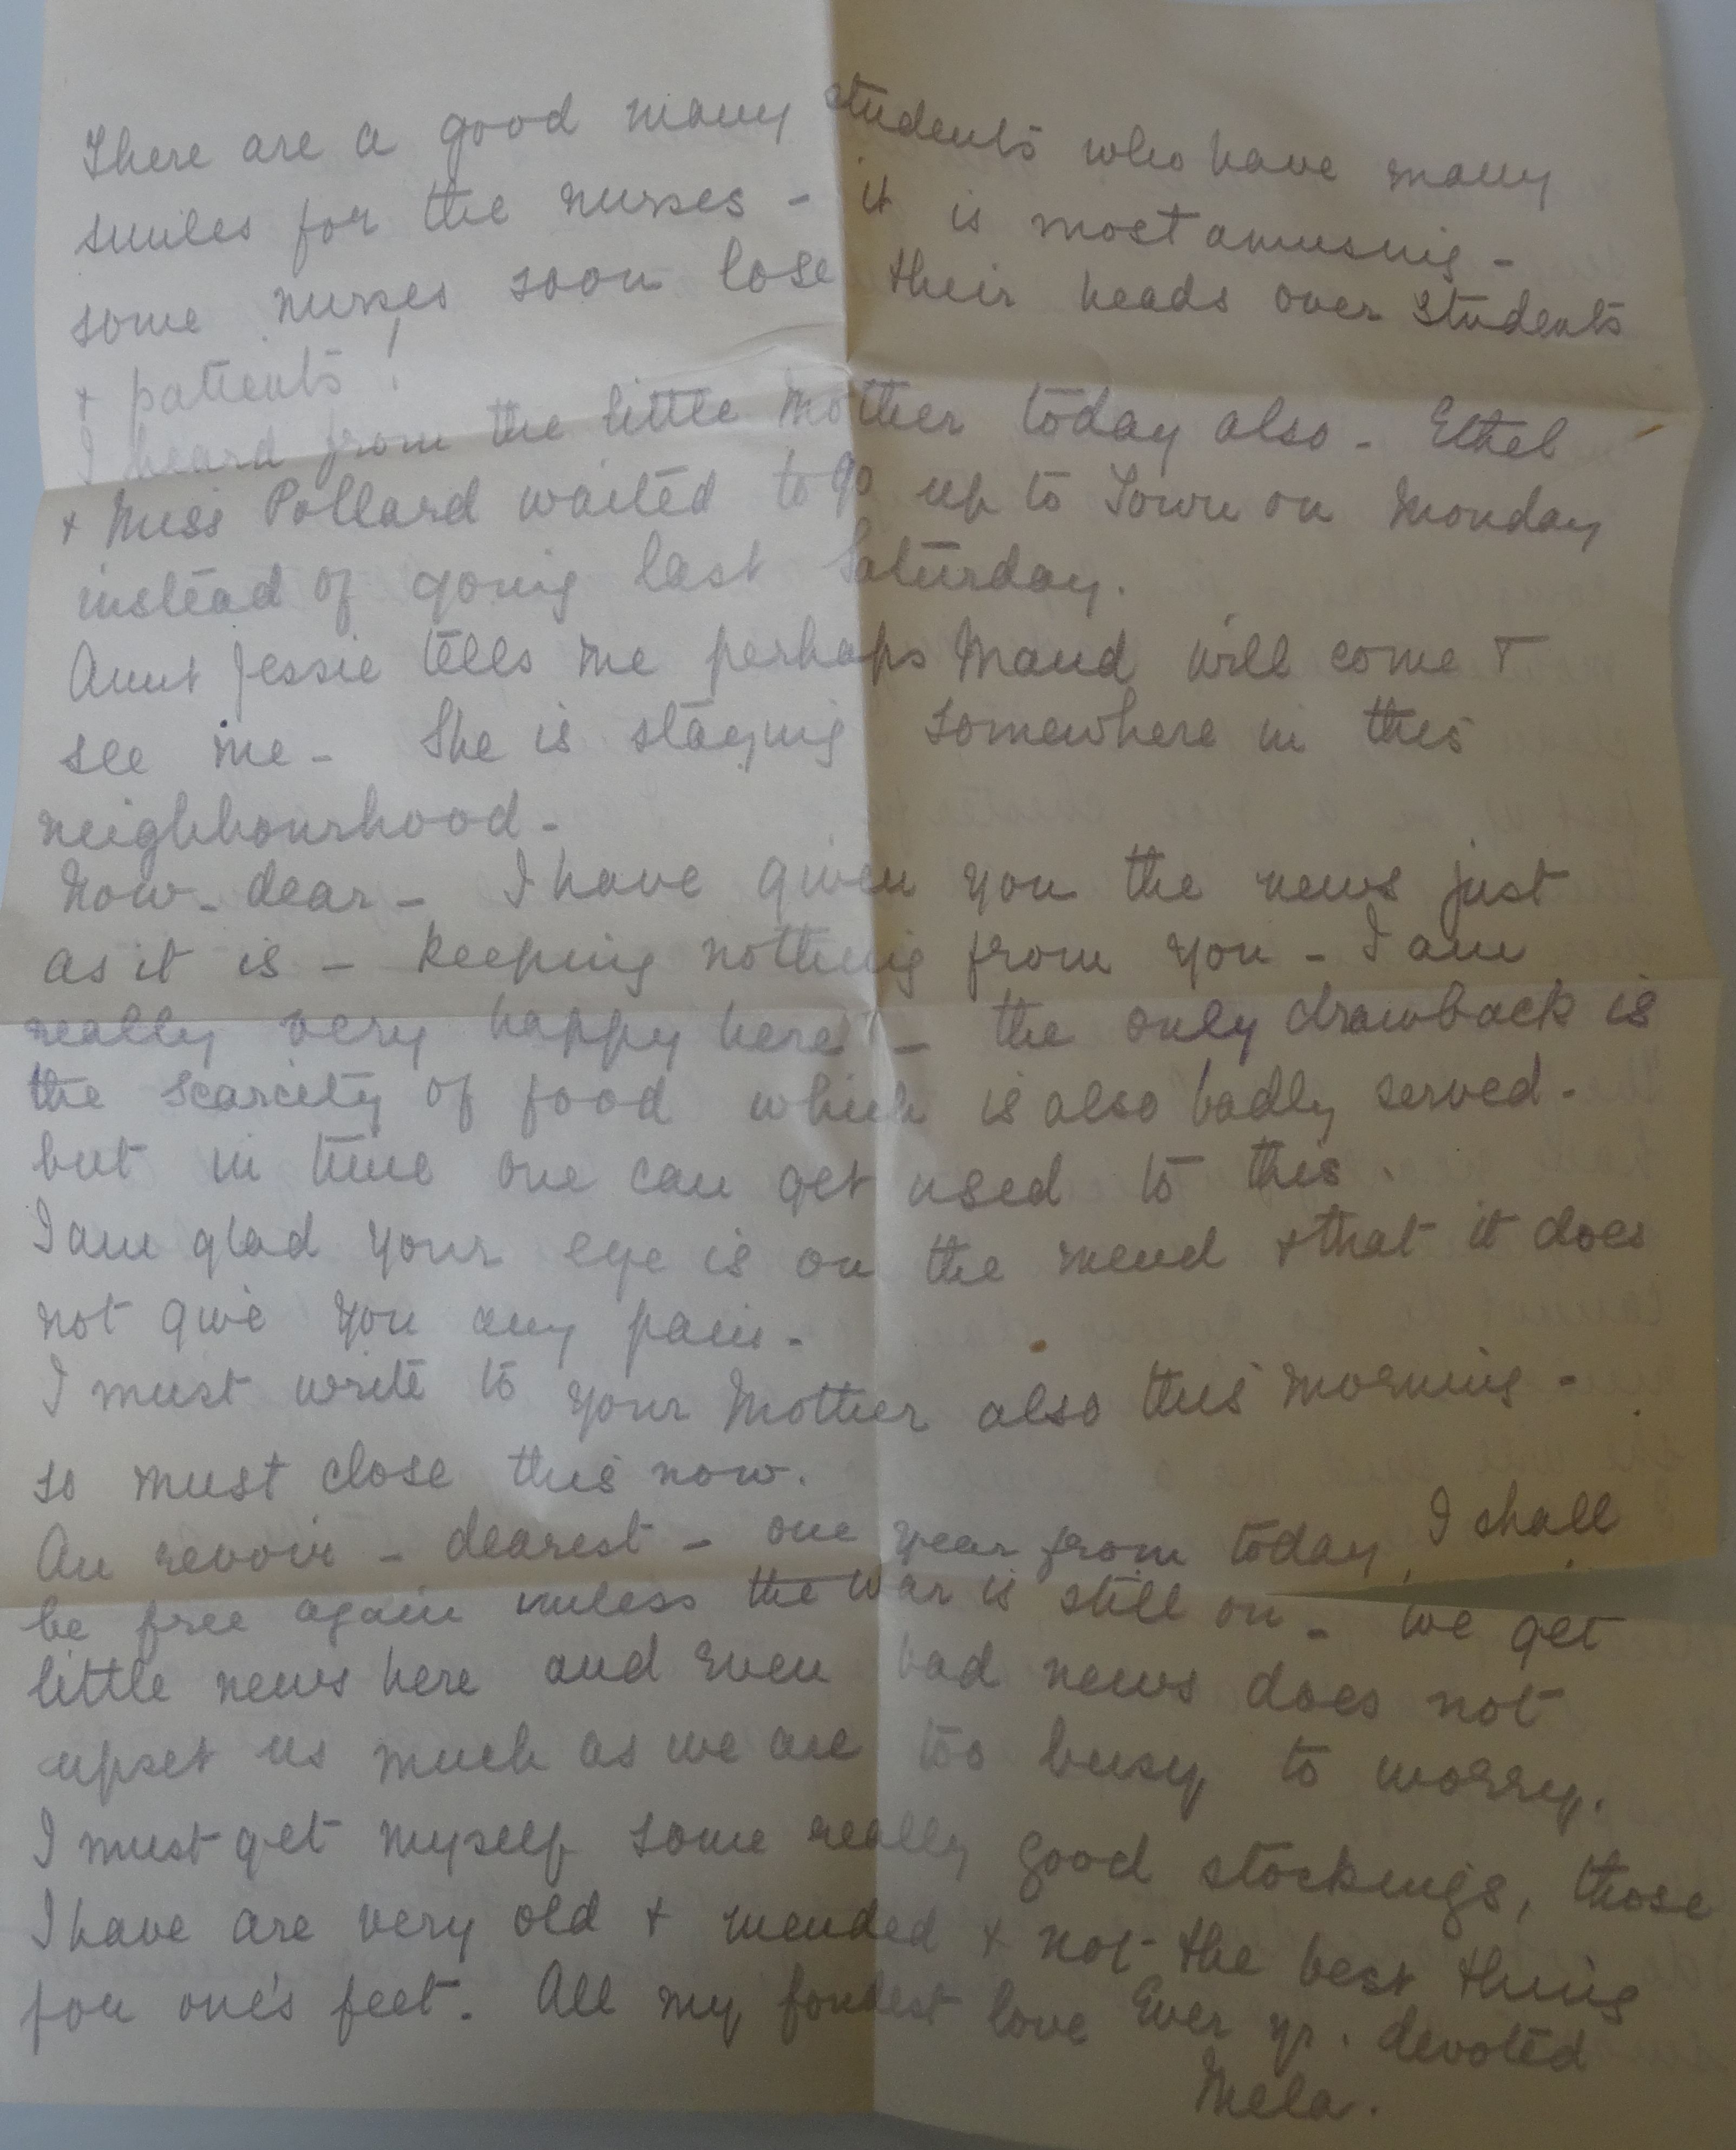 There are a good many students who have many
smiles for the nurses - it is most amusing -
some nurses soon lose their heads over students
+ patients !
I heard from the little Mother today also - Ethel
+ Miss Pollard waited to go up to Town on Monday
instead of going last Saturday.
Aunt Jessie tells me perhaps Maud will come +
see me - She is staying somewhere in this
neighbourhood -
Now - dear - I have given you the news just
as it is - keeping nothing from you - I am
really very happy here - the only drawback is
the scarcity of food which is also badly served -
but in time one can get used to this.
I am glad your eye is on the mend + that it does
not give you any pain -
I must write to your Mother also this morning -
so must close this now.
Au revoir - dearest - one year from today, I shall
be free again unless the war is still on - we get
little news here and even bad news does not
upset us much as we are too busy to worry.
I must get myself some really good stockings, those
I have are very old + mended + not the best thing
for one's feet. All my fondest love Ever yr. devoted
Mela.